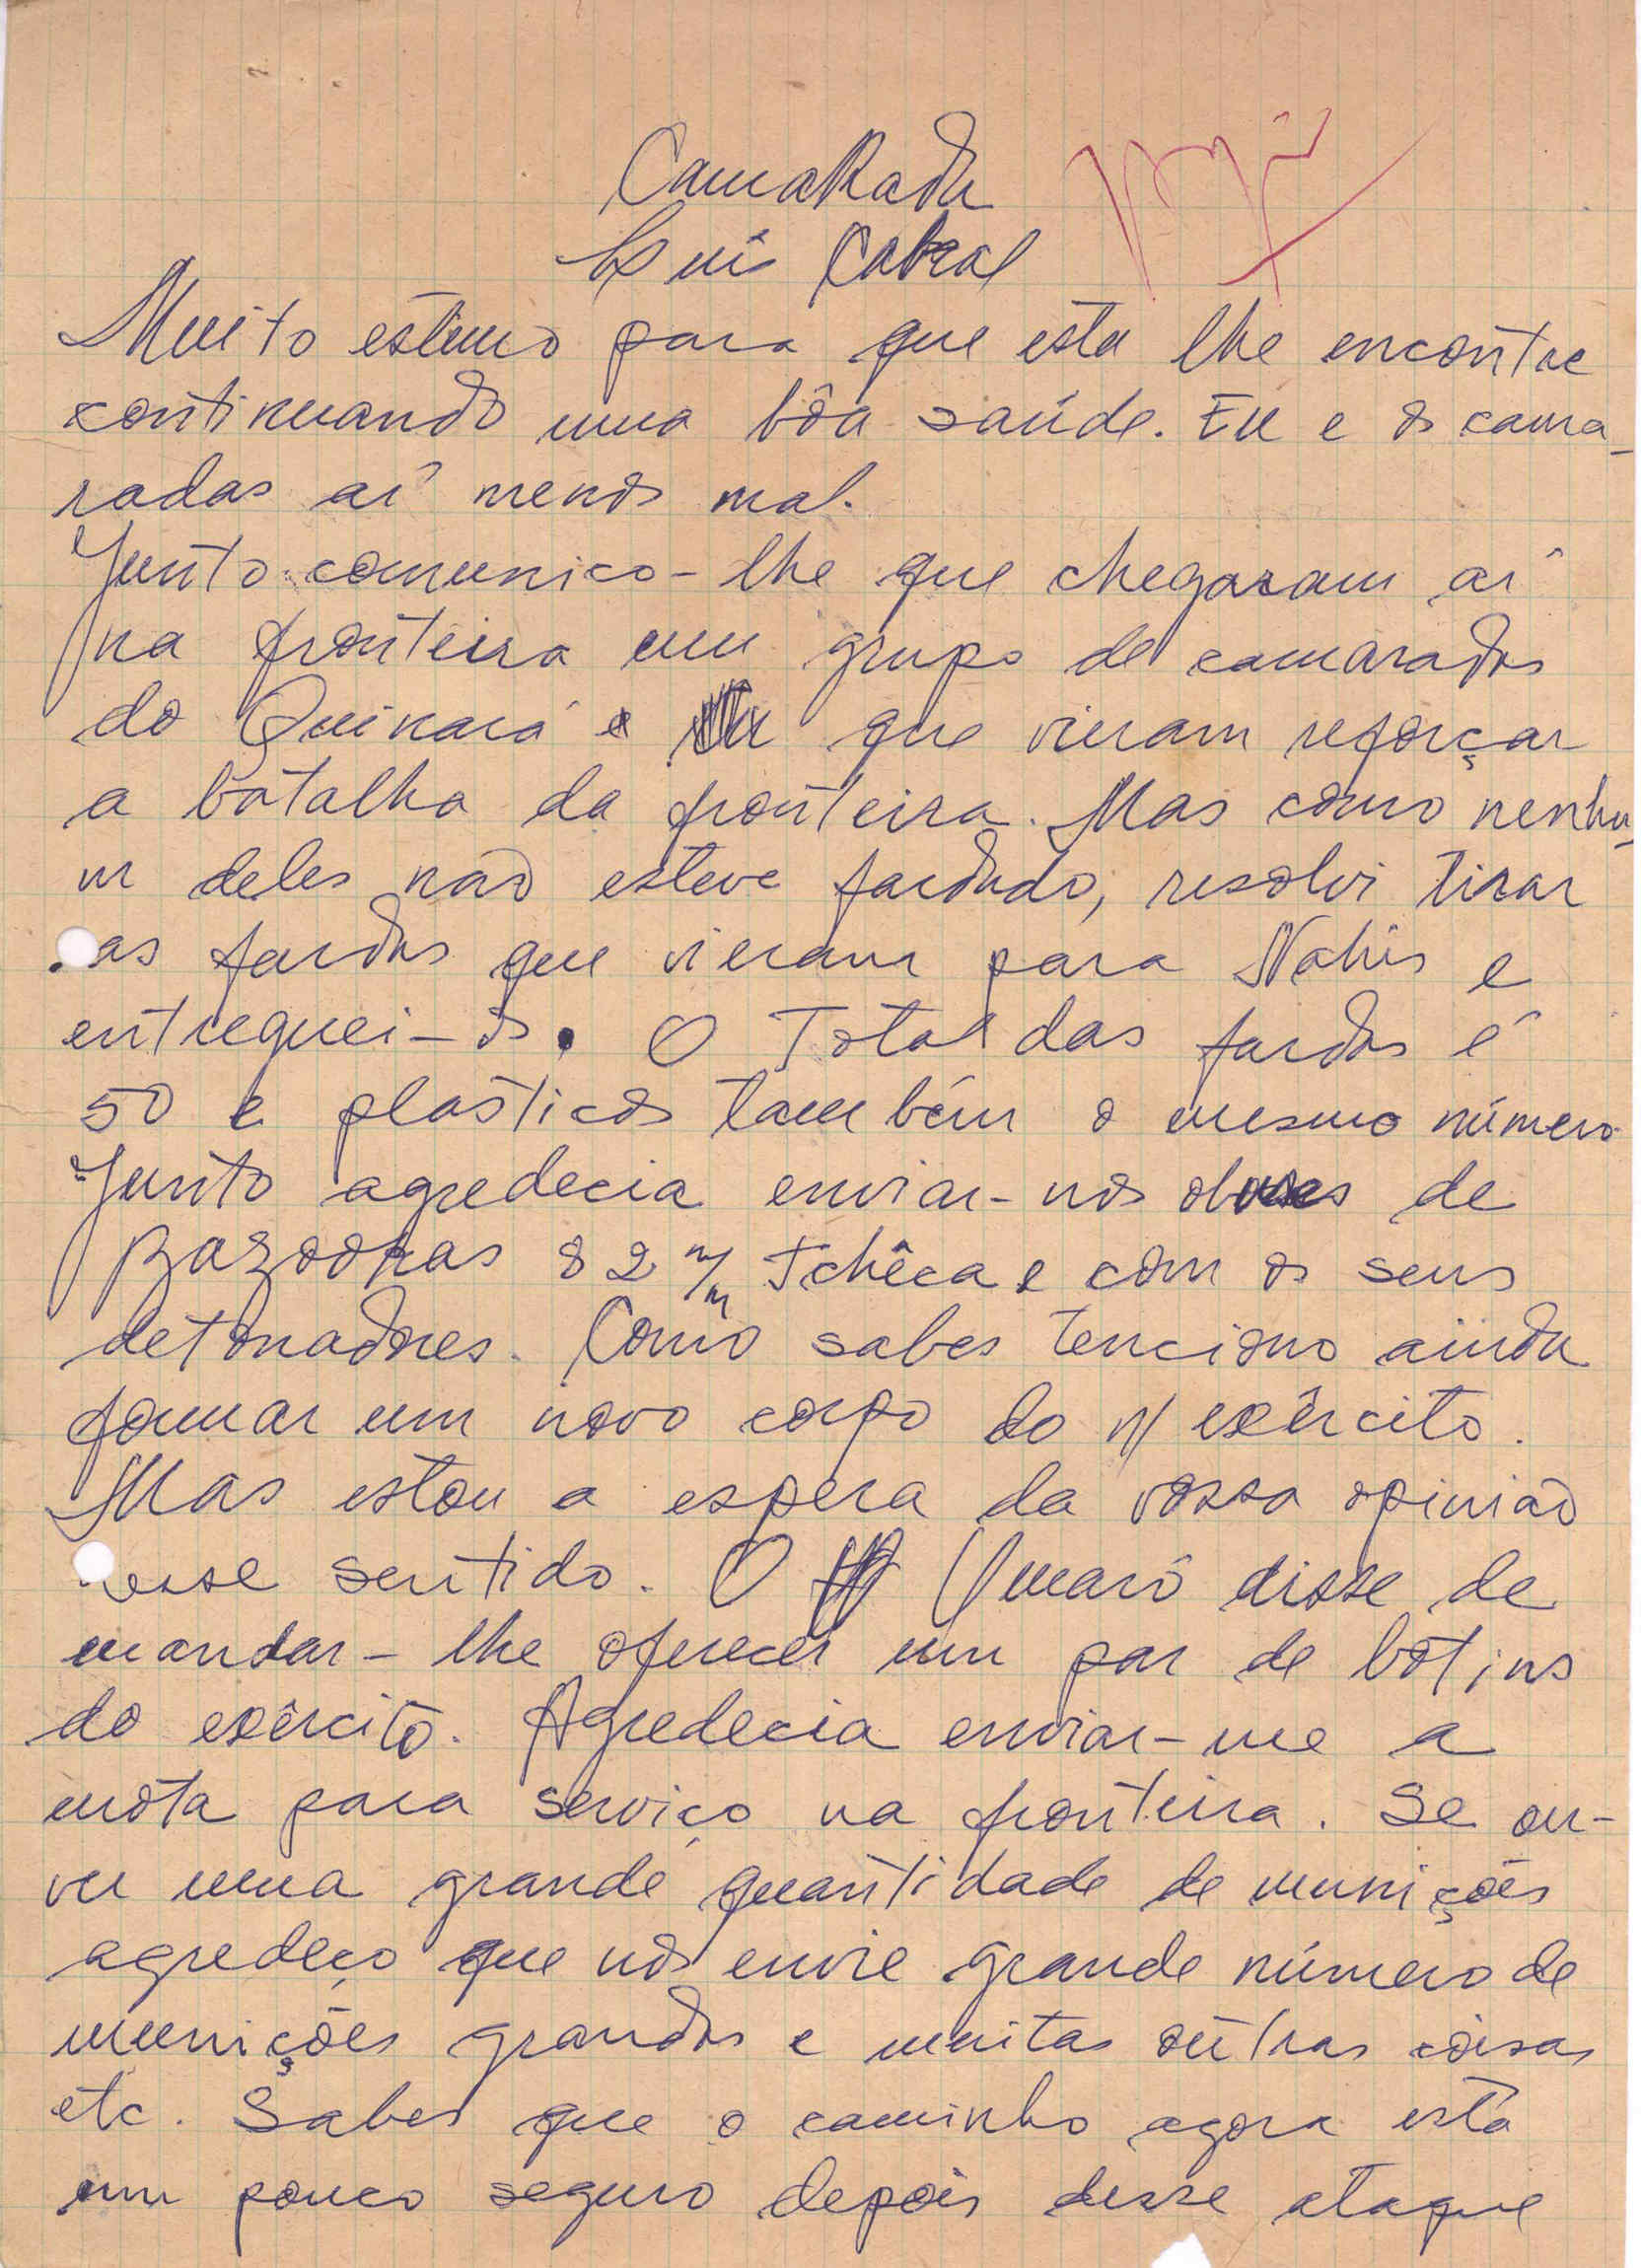 CamaRada
Luis Cabral
Muito estimo para que esta lhe encontre
continuando uma bôa saúde. Eu e os cama-
radas aí menos mal.
Junto comunico-lhe que chegaram aí
na fronteira um grupo de camaradas
do Quinara e que vieram reforçar
a batalha da fronteira. Mas como nenhu-
m deles não esteve fardado, resolvi tirar
as fardas que vieram para e
entreguei-os. O Total das fardas é
50 e plásticos também o mesmo número
Junto agredecia enviar-nos obuses de
Bazookas 82 m/m Tchêca e com os seus
detonadores. Como sabes tenciono ainda
formar um novo corpo do n/ exército.
Mas estou a espera da vossa opinião
nesse sentido. O Umarú disse de
mandar-lhe oferecer um par de botins
do exército. Agredecia enviar-me a
mota para serviço na fronteira. Se ou-
ver uma grande quantidade de munições
agredeço que nos envie grande número de
munições grandes e muitas outras coisas
etc. Sabes que o caminho agora está
um pouco seguro depois desse ataque